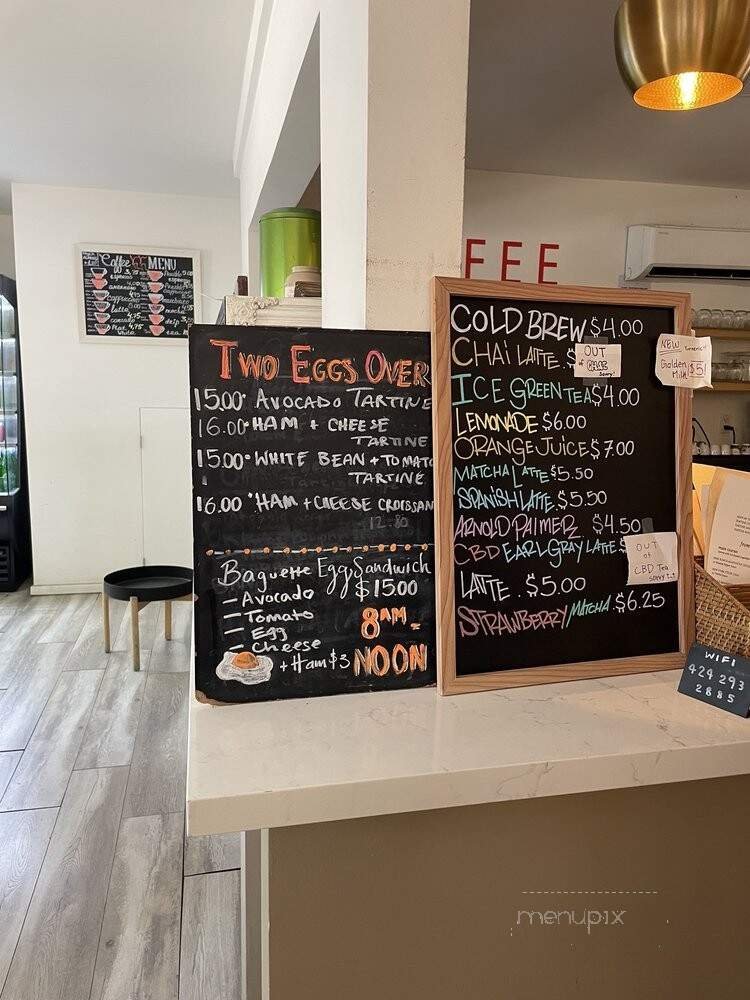 Coffee MENU
FEE
TWO EGGS OVER
15.00 AVOCADO TARTINE
16.00 HAM + CHEESE
TARTINE
15.00 WHITE BEAN + TOMATO
TARTINE
16.00 HAM + CHEESE CROISSAN
12.80
Baguette Egg Sandwich
- Avocado $15.00
- Tomato
- Egg
- Cheese
+ Ham $3
8AM -
NOON
COLD BREW $4.00
CHAI LATTE . $
OUT
of
sorry!
ICE GREEN TEA $4.00
LEMONADE $6.00
ORANGE JUICE $7.00
MATCHA LATTE $5.50
SPANISH LATTE . $5.50
ARNOLD PALMER $4.50
CBD EARL GRAY LATTE $
OUT
of
CBD Tea
sorry
LATTE . $5.00
STRAWBERRY/MATCHA . $6.25
NEW
Golden
Milk $5
WIFI
424 293
2885
menupix